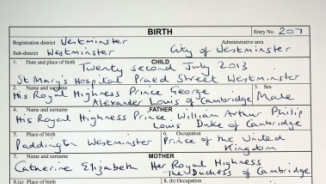 BIRTH
Entry No. 207
Registration district Westminster Administrative area
Sub-district Westminster City of Westminster
1. Date and place of birth CHILD
Twenty second July 2013
St Mary's Hospital Praed Street Westminster
2. Name and surname 3. Sex
His Royal Highness Prince George
Alexander Louis of Cambridge Male
4. Name and surname FATHER
His Royal Highness Prince William Arthur Philip
Louis Duke of Cambridge
5. Place of birth 6. Occupation
Paddington Westminster Prince of the United
Kingdom
7. Name and surname MOTHER
Catherine Elizabeth Her Royal Highness
The Duchess of Cambridge
8.(a) Place of birth 8. (b) Occupation